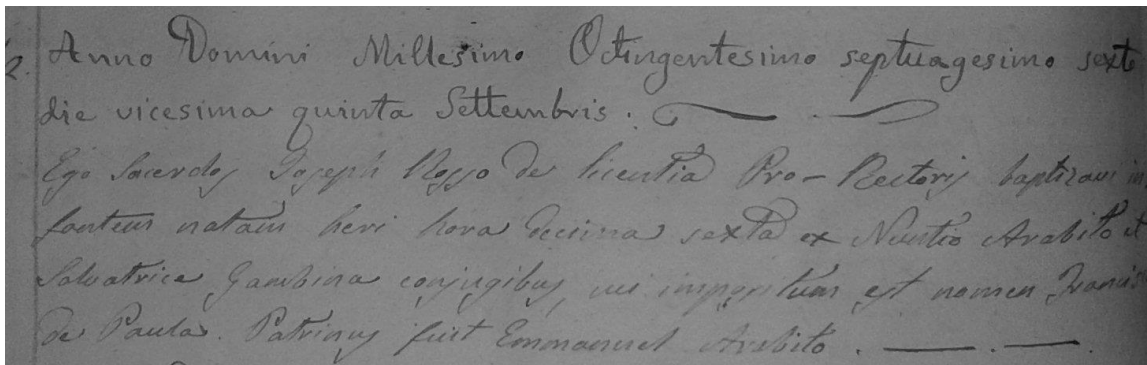 2. Anno Domini Millesimo Octingentesimo septuagesimo sexto
die vicesima quinta Settembris.
Ego Sacerdos Joseph Rosso de licentia Pro-Rectoris baptizavi in
fantem natam heri hora decima sexta ex Nuntio Arabito et
Salvatrice Gambina conjugibus, cui impositum est nomen Francis
de Paula. Patrinus fuit Emmanuel Arabito.